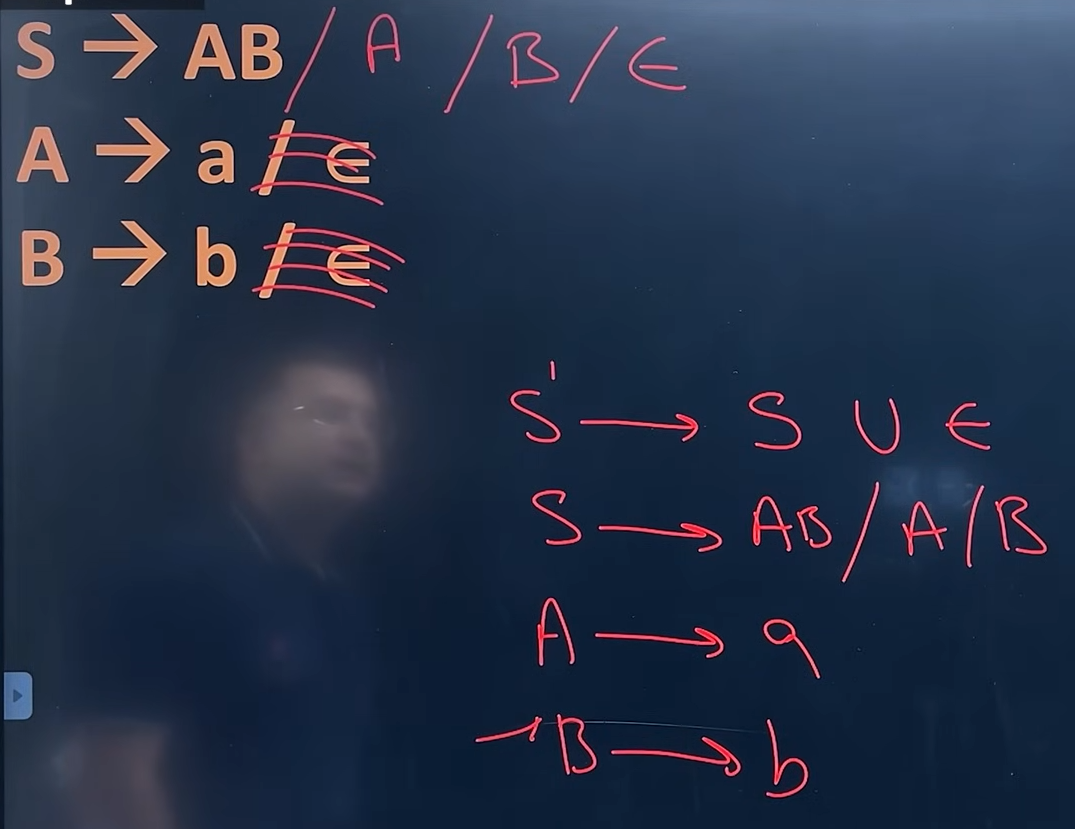 S → AB / A / B / ∈
A → a / ∈
B → b / ∈
S' → S ∪ ∈
S → AB / A / B
A → a
B → b